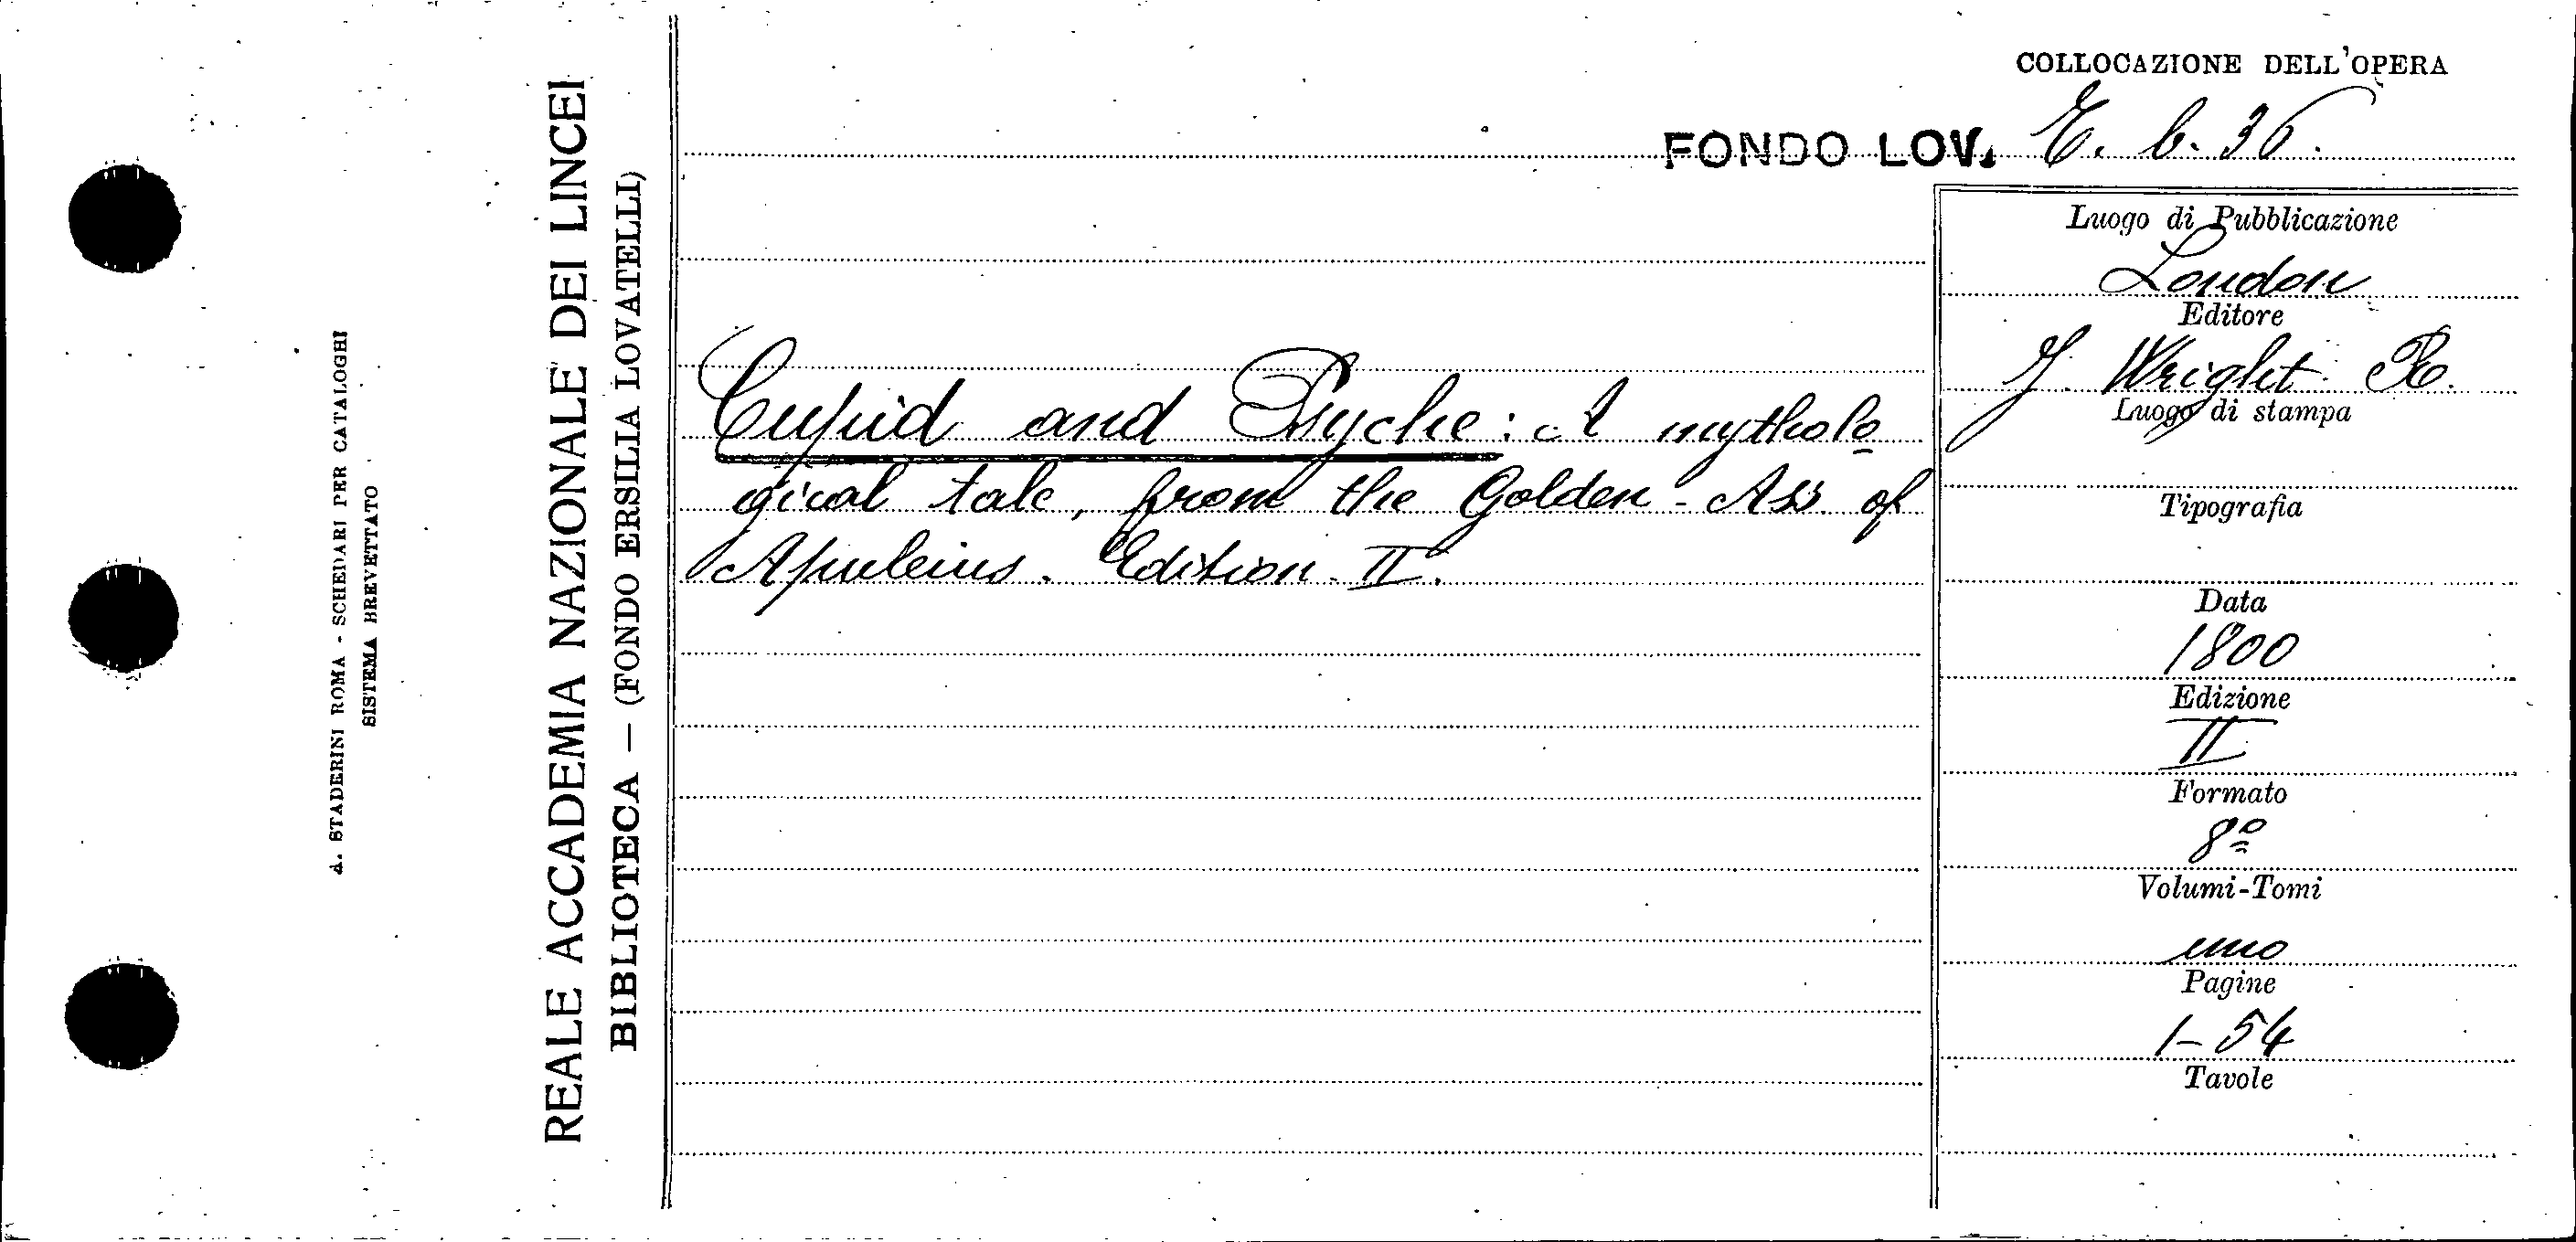 COLLOCAZIONE DELL'OPERA
FONDO LOV. E. b. 36.
Cupid and Psyche: A mytholo=
gical tale, from the Golden-Ass of
Apuleius. Edition II.
Luogo di Pubblicazione
London
Editore
J. Wright
Luogo di stampa
Tipografia
Data
1800
Edizione
II
Formato
8º
Volumi-Tomi
uno
Pagine
1-54
Tavole
REALE ACCADEMIA NAZIONALE DEI LINCEI
BIBLIOTECA — (FONDO ERSILIA LOVATELLI)
d. STADERINI ROMA - SCHEDARI PER CATALOGHI
SISTEMA BREVETTATO